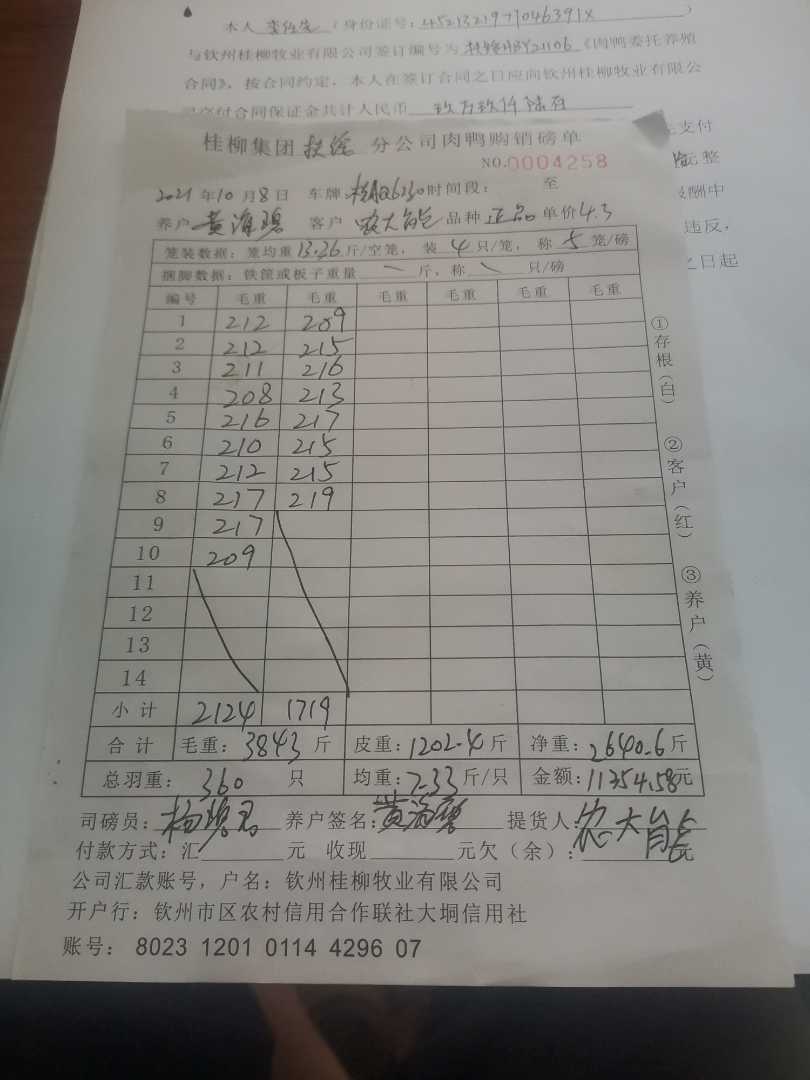 本人 （身份证号：4521321971046391X ）
与钦州桂柳牧业有限公司签订编号为 《肉鸭委托养殖
合同》，按合同约定，本人在签订合同之日应向钦州桂柳牧业有限公
司交付合同保证金共计人民币 玖万玖仟陆百
支付
元整
报酬中
违反，
之日起
桂柳集团 扶绥 分公司肉鸭购销磅单
NO.0004258
2021 年 10 月 8 日 车牌 时间段： 至
养户 黄海碧 客户 农大能 品种 正品 单价 4.3
笼装数据：笼均重 13.36 斤/空笼， 装 4 只/笼， 称 5 笼/磅
捆脚数据：铁筐或板子重量 — 斤，称 \ 只/磅
编号 毛重 毛重 毛重 毛重 毛重 毛重
1 212 209
2 212 215
3 211 216
4 208 213
5 216 217
6 210 215
7 212 215
8 217 219
9 217
10 209
11
12
13
14
小计 2124 1719
合计 毛重：3843 斤 皮重：1202.4 斤 净重：2640.6 斤
总羽重： 360 只 均重：7.33 斤/只 金额：11354.58 元
①存根（白）
②客户（红）
③养户（黄）
司磅员： 养户签名：黄海碧 提货人：农大能
付款方式：汇 元 收现 元欠（余）： 元
公司汇款账号，户名：钦州桂柳牧业有限公司
开户行：钦州市区农村信用合作联社大垌信用社
账号： 8023 1201 0114 4296 07